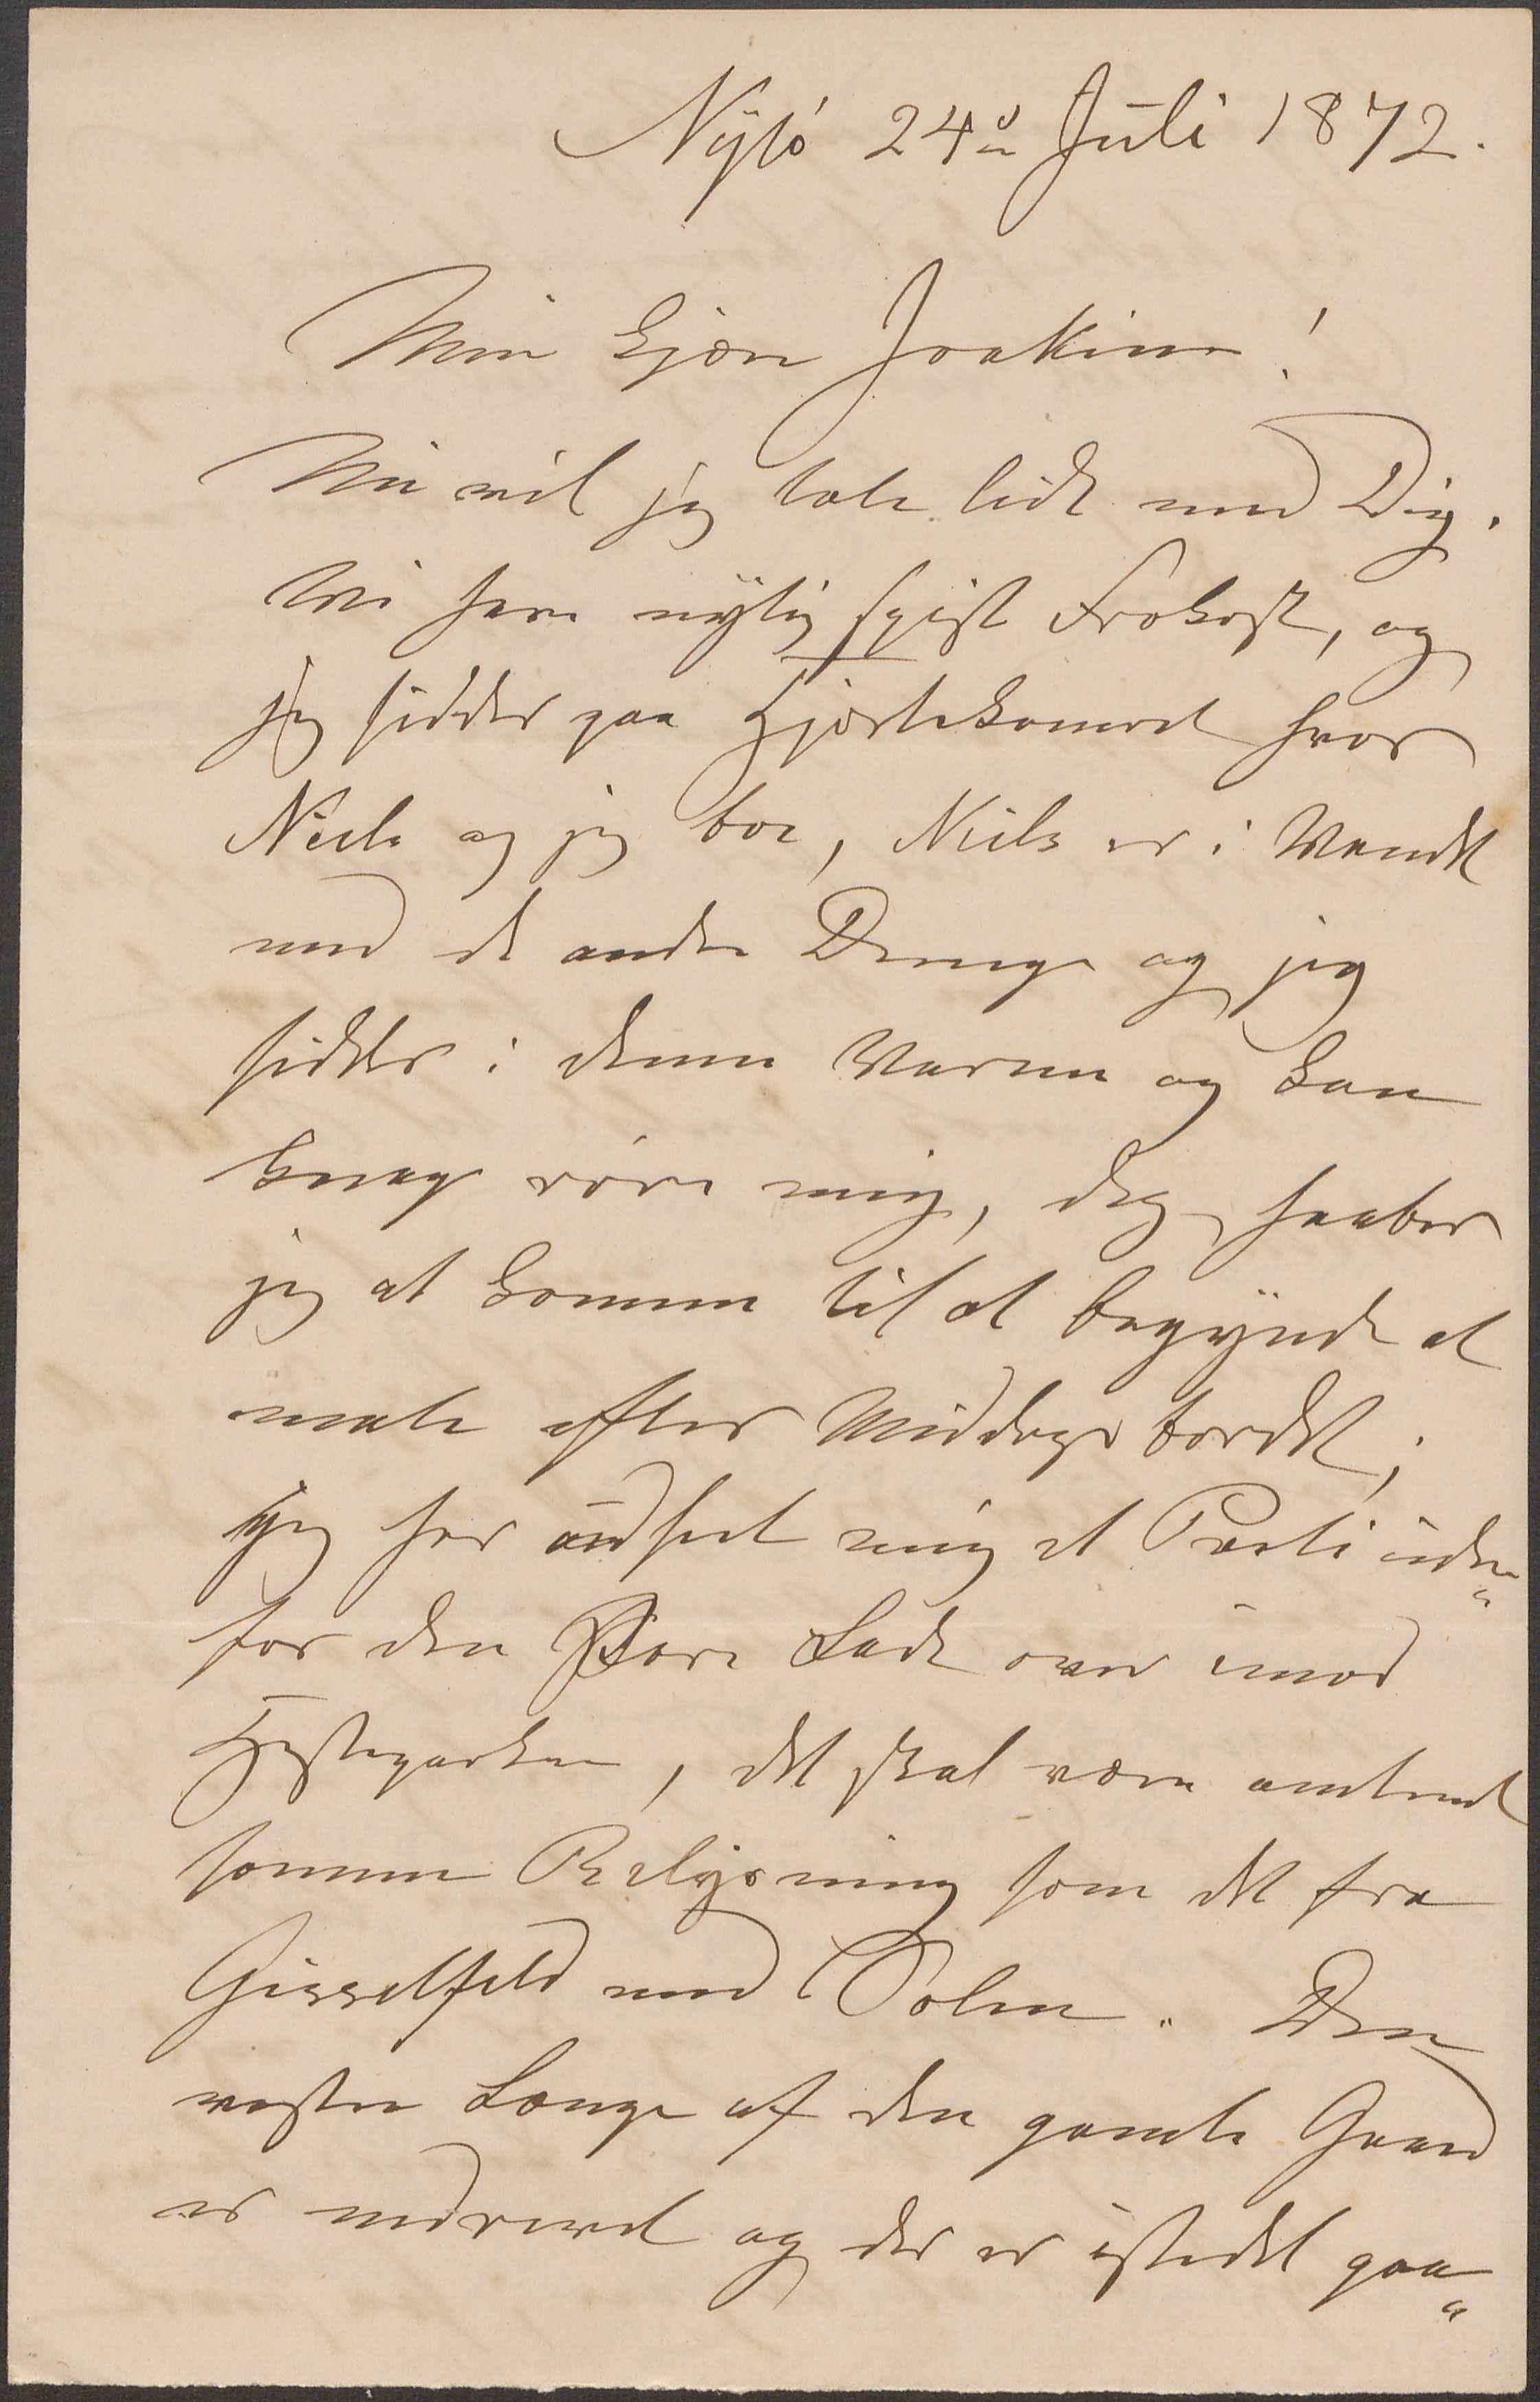 Nysö 24de Juli 1872.
Min kjære Joakim!
Nu vil jeg tale lidt med Dig.
Vi have nylig spist Frokost, og
jeg sidder paa Hjørtekameret hvor
Niels og jeg boe, Niels er i Vandet
med de andre Drenge og jeg
sidder i denne Varme og kan
knap röre mig, dog haaber
jeg at komme til at begynde at
male efter Middagsbordet;
jeg har udseet mig et Parti uden„
for den store Lade over imod
Hestegarden, det skal være omtrent
samme Belysning som det fra
Gisselfeld med Solen. Den
vestre Længe af den gamle Gaard
er nedrevet og der er istedet paa„